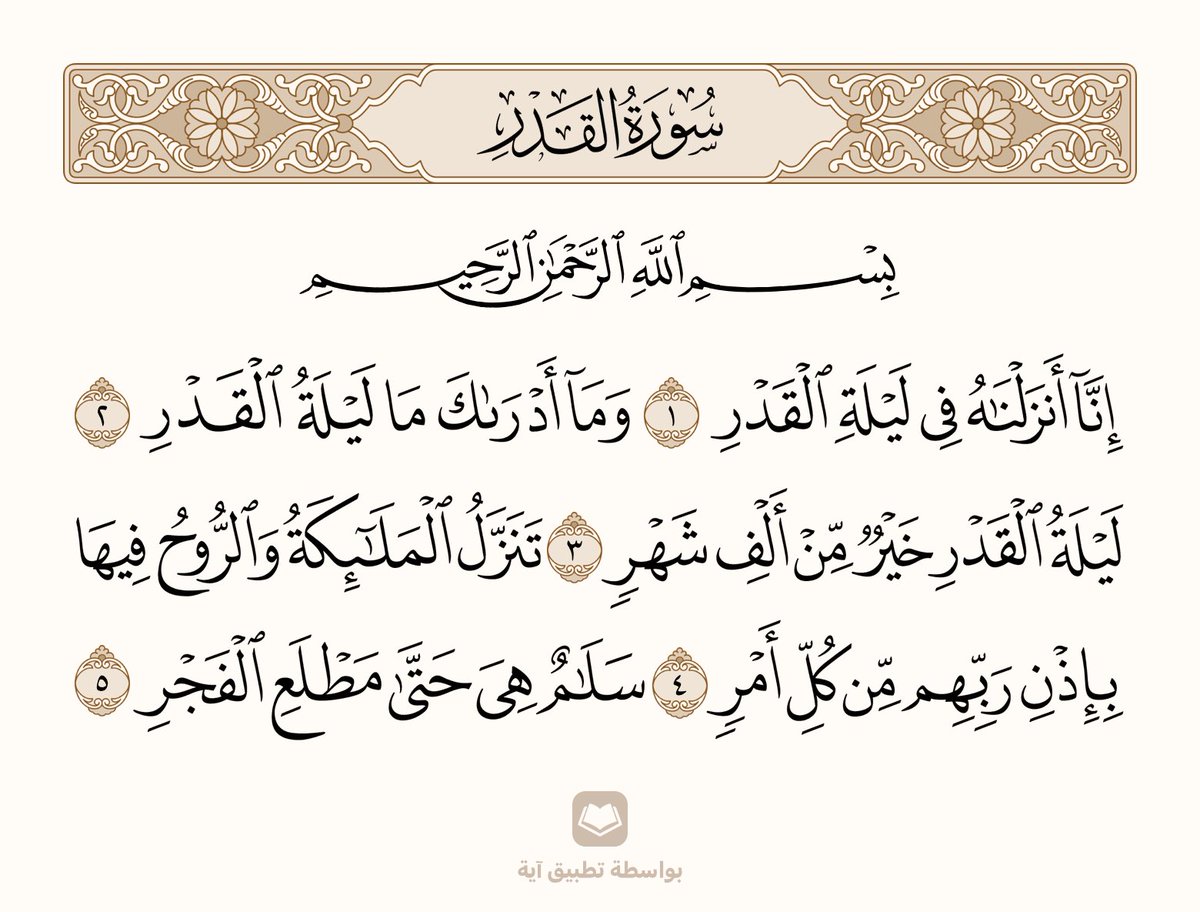 سُورَةُ القَدۡرِ
بِسۡمِ ٱللَّهِ ٱلرَّحۡمَٰنِ ٱلرَّحِيمِ
إِنَّآ أَنزَلۡنَٰهُ فِي لَيۡلَةِ ٱلۡقَدۡرِ ١ وَمَآ أَدۡرَىٰكَ مَا لَيۡلَةُ ٱلۡقَدۡرِ ٢
لَيۡلَةُ ٱلۡقَدۡرِ خَيۡرٞ مِّنۡ أَلۡفِ شَهۡرٖ ٣ تَنَزَّلُ ٱلۡمَلَٰٓئِكَةُ وَٱلرُّوحُ فِيهَا
بِإِذۡنِ رَبِّهِم مِّن كُلِّ أَمۡرٖ ٤ سَلَٰمٌ هِيَ حَتَّىٰ مَطۡلَعِ ٱلۡفَجۡرِ ٥
بواسطة تطبيق آية